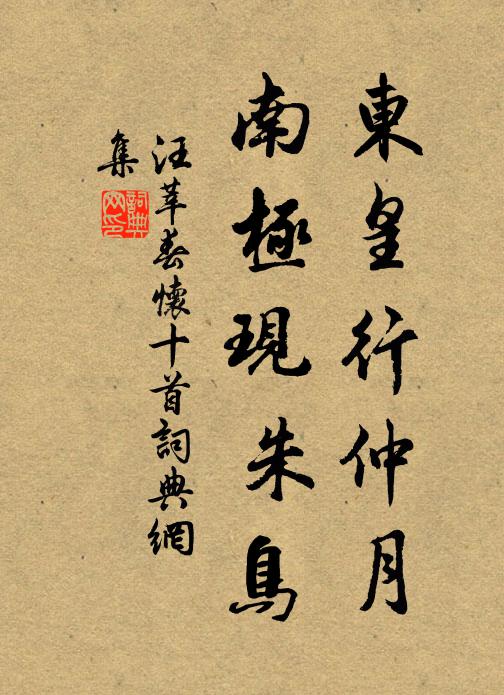 東皇行仲月
南極現朱鳥
汪莘春懷十首詞典網
集
詞典
网印